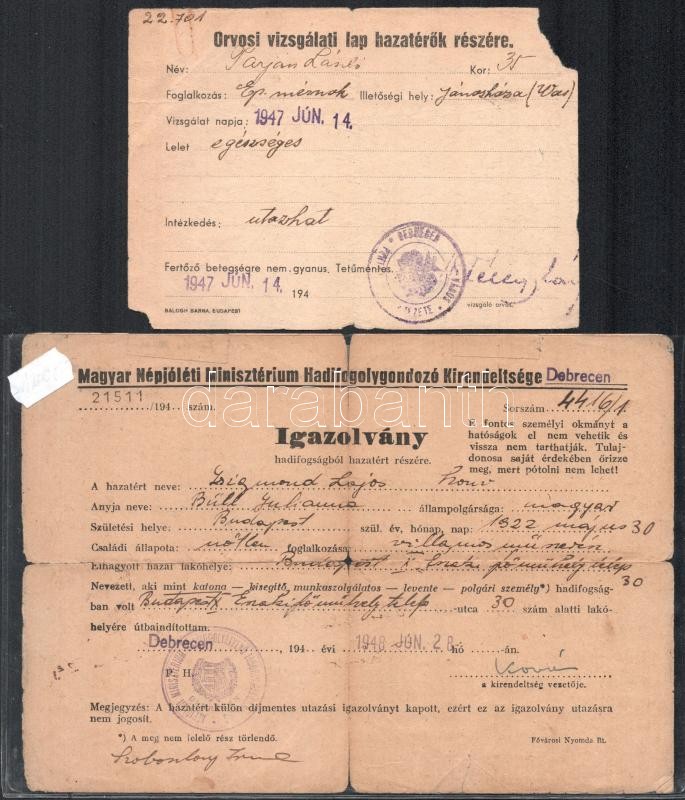 22.701
Orvosi vizsgálati lap hazatérők részére.
Név: Parján László Kor: 35
Foglalkozás: Ép. mérnök Illetőségi hely: Jánosháza (Vas)
Vizsgálat napja: 1947 JÚN. 14.
Lelet egészséges
Intézkedés: utazhat
Fertőző betegségre nem gyanus, Tetűmentes.
1947 JÚN. 14. 194
DEBRECEN
BALOGH BARNA, BUDAPEST
vizsgáló orvos.
Magyar Népjóléti Minisztérium Hadifogolygondozó Kirendeltsége Debrecen
21511 /194 szám.
Sorszám 4416/1.
darabanth
Igazolvány
hadifogságból hazatért részére.
E fontos személyi okmányt a
hatóságok el nem vehetik és
vissza nem tarthatják. Tulaj-
donosa saját érdekében őrizze
meg, mert pótolni nem lehet!
A hazatért neve: Zsigmond Lajos honv
Anyja neve: Büll Julianna állampolgársága: magyar
Születési helye: Budapest szül. év, hónap, nap: 1922 május 30
Családi állapota: nőtlen foglalkozása: villamos műszerész
Elhagyott hazai lakóhelye: Budapest X. Északi főműhely telep
30
Nevezett, aki mint katona — kisegítő, munkaszolgálatos — levente — polgári személy*) hadifogság-
ban volt Budapest X Északi főműhely telep -utca 30 szám alatti lakó-
helyére útbaindítottam.
Debrecen, 194 évi 1948 JÚN. 28 hó -án.
P. H.
a kirendeltség vezetője.
Megjegyzés: A hazatért külön díjmentes utazási igazolványt kapott, ezért ez az igazolvány utazásra
nem jogosít.
*) A meg nem felelő rész törlendő.
Fővárosi Nyomda Rt.